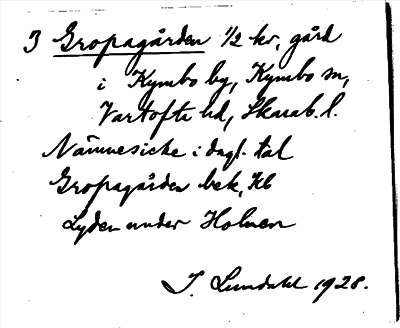 3 Gropagården 1/2 kr, gård
i Kymbo by, Kymbo sn,
Vartofta hd, Skarab. l.
Nämnes icke i dagl. tal
Gropagården bek, Kb
Lyden under Holmen
I. Lundahl 1928.